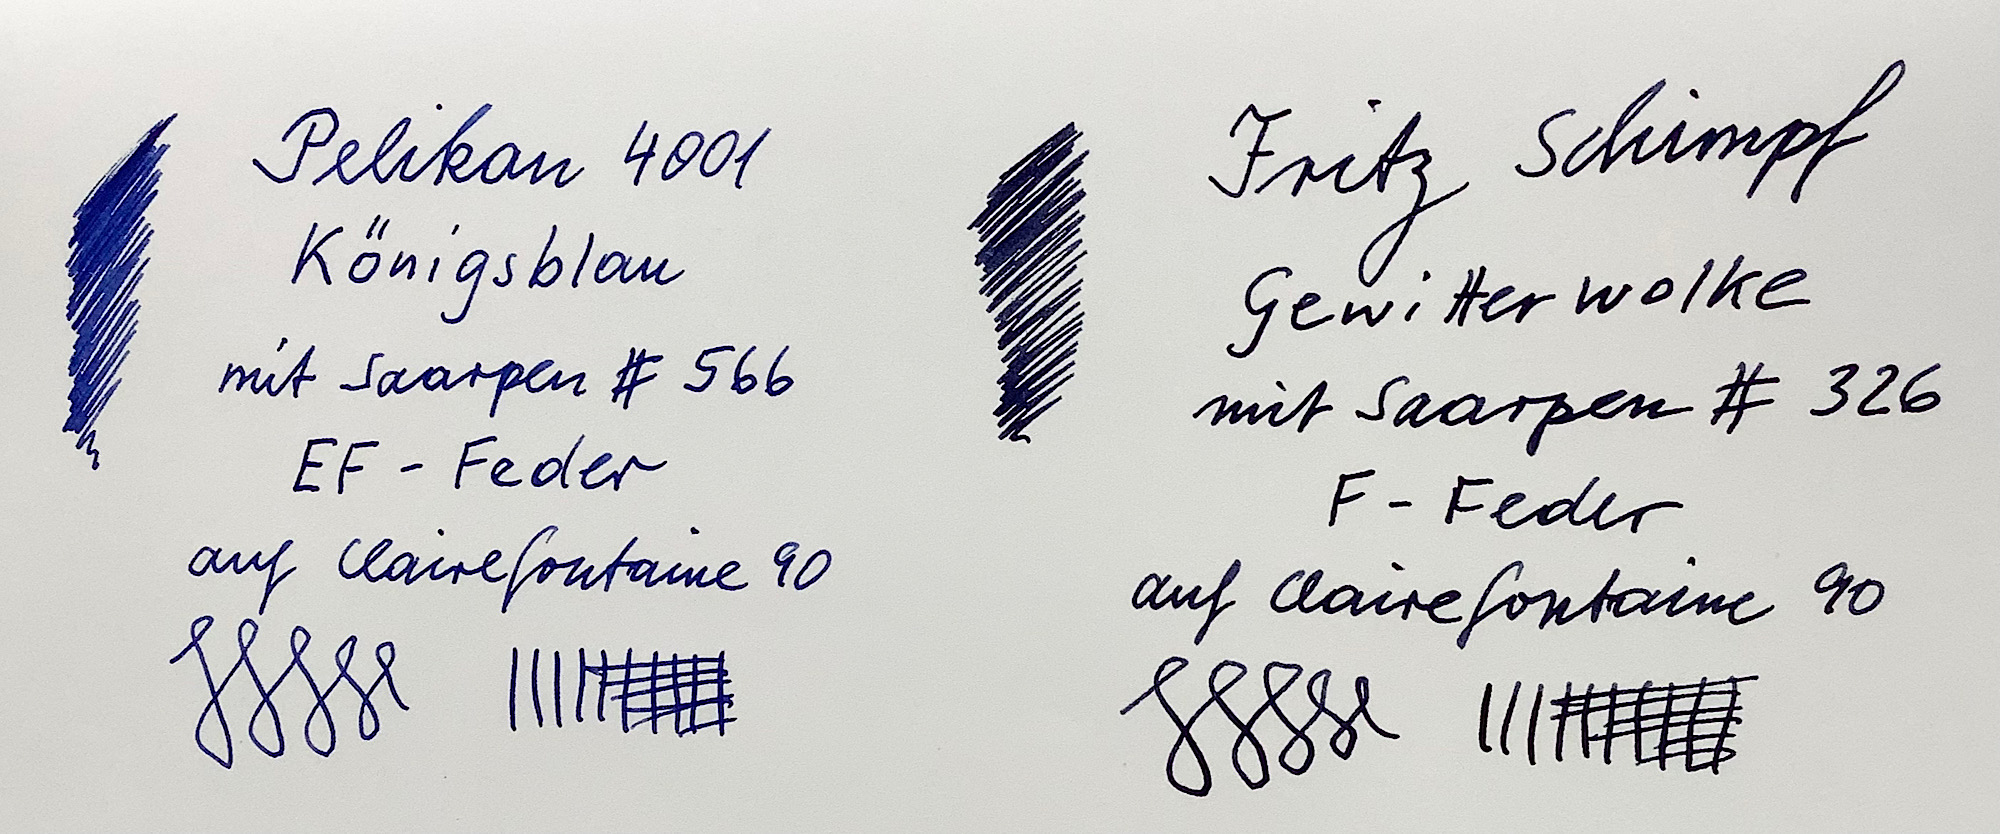 Pelikan 4001
Königsblau
mit Saarpen # 566
EF - Feder
auf Clairefontaine 90
Fritz Schimpf
Gewitterwolke
mit Saarpen # 326
F - Feder
auf Clairefontaine 90